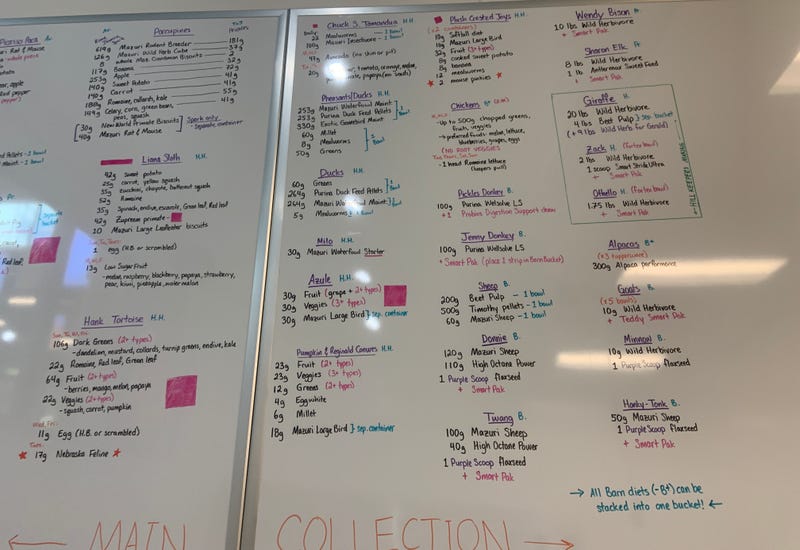 Rat & Mouse
Porcupines
619g Mazuri Rodent Breeder 181g
126g Mazuri Wild Herb Cube 37g
8 whole Maz. Cinnamon Biscuits 2
117g Banana 32g
253g Apple 72g
140g Sweet Potato 41g
140g Carrot 41g
180g Romaine, collards, kale 55g
149g Celery, corn, green bean, peas, squash 41g
30g New World Primate Biscuits
40g Mazuri Rat & Mouse
Spark only
- separate container
Liana Sloth H.H.
42g sweet potato
25g carrot, yellow squash
35g zucchini, chayote, butternut squash
52g Romaine
35g Spinach, endive, escarole, Green leaf, Red leaf
42g Zupreem primate -
10 Mazuri Large Leafeater biscuits
1 egg (H.B. or scrambled)
13g Low Sugar Fruit
- melon, raspberry, blackberry, papaya, strawberry, pear, kiwi, pineapple, watermelon
Hank Tortoise H.H.
106g Dark Greens (2+ types)
- dandelion, mustard, collards, turnip greens, endive, kale
22g Romaine, Red leaf, Green leaf
64g Fruit (2+ types)
- berries, mango, melon, papaya
22g Veggies (2+ types)
- squash, carrot, pumpkin
Wed, Fri:
11g Egg (H.B. or scrambled)
Tues:
17g Nebraska Feline
MAIN
Chuck S. Tamandua H.H.
Daily:
22 Mealworms - 1 bowl
100g Mazuri Insectivore - 1 bowl
49g Avocado (no skin or pit)
Pheasants/Ducks H.H.
253g Mazuri Waterfowl Maint.
253g Purina Duck Feed Pellets
330g Exotic Gamebird Maint.
1 Bowl
60g Millet
8g Mealworms
50g Greens
1 Bowl
Ducks H.H.
60g Greens
264g Purina Duck Feed Pellets
264g Mazuri Waterfowl Maint.
5g Mealworms
1 Bowl
Milo H.H.
30g Mazuri Waterfowl Starter
Azule H.H.
30g Fruit (grape + 2+ types)
30g Veggies (3+ types)
30g Mazuri Large Bird } sep. container
Pumpkin & Reginald Conures H.H.
23g Fruit (2+ types)
23g Veggies (3+ types)
12g Greens (2+ types)
4g Eggwhite
6g Millet
18g Mazuri Large Bird } sep. container
COLLECTION
Plush Crested Jays H.H.
(x2 containers)
10g Softbill diet
18g Mazuri Large Bird
32g Fruit (3+ types)
8g Cooked sweet potato
8g banana
12 mealworms
2 mouse pinkies
Chickens
- Up to 500g chopped greens, fruits, veggies
- preferred fruits: melon, lettuce, blueberries, grapes, egg
(NO ROOT VEGGIES)
- 1 head Romaine lettuce (keepers pull)
Pickles Donkey B.
100g Purina Wellsolve LS
+ 1 Probios Digestion Support chew
Jenny Donkey B.
100g Purina Wellsolve LS
+ Smart Pak (place 1 strip in Barn bucket)
Sheep B.
200g Beet Pulp - 1 bowl
500g Timothy pellets - 1 bowl
60g Mazuri Sheep - 1 bowl
Donnie B.
120g Mazuri Sheep
110g High Octane Power
1 Purple Scoop flaxseed
+ Smart Pak
Twang B.
100g Mazuri Sheep
40g High Octane Power
1 Purple Scoop flaxseed
+ Smart Pak
Wendy Bison B.
10 lbs Wild Herbivore
+ Smart Pak
Sharon Elk Pr.
8 lbs Wild Herbivore
1 lb Antlermax Sweet Feed
+ Smart Pak
Giraffe H.
20 lbs Wild Herbivore
4 lbs Beet Pulp } sep. bucket
(+ 9 lbs Wild Herb for Gerald)
Zach H. (for ter bowl)
2 lbs Wild Herbivore
1 scoop Smart Stride Ultra
+ Smart Pak
Othello H. (for ter bowl)
1.75 lbs Wild Herbivore
+ Smart Pak
← HILL KEEPERS MAKE →
Alpacas B*
(x3 tupperware)
300g Alpaca performance
Goats B.
(x5 bowls)
10g Wild Herbivore
+ Teddy Smart Pak
Minnow B.
10g Wild Herbivore
1 Purple Scoop flaxseed
Honky-Tonk B.
50g Mazuri Sheep
1 Purple Scoop flaxseed
+ Smart Pak
→ All Barn diets (-B*) can be stacked into one bucket! ←